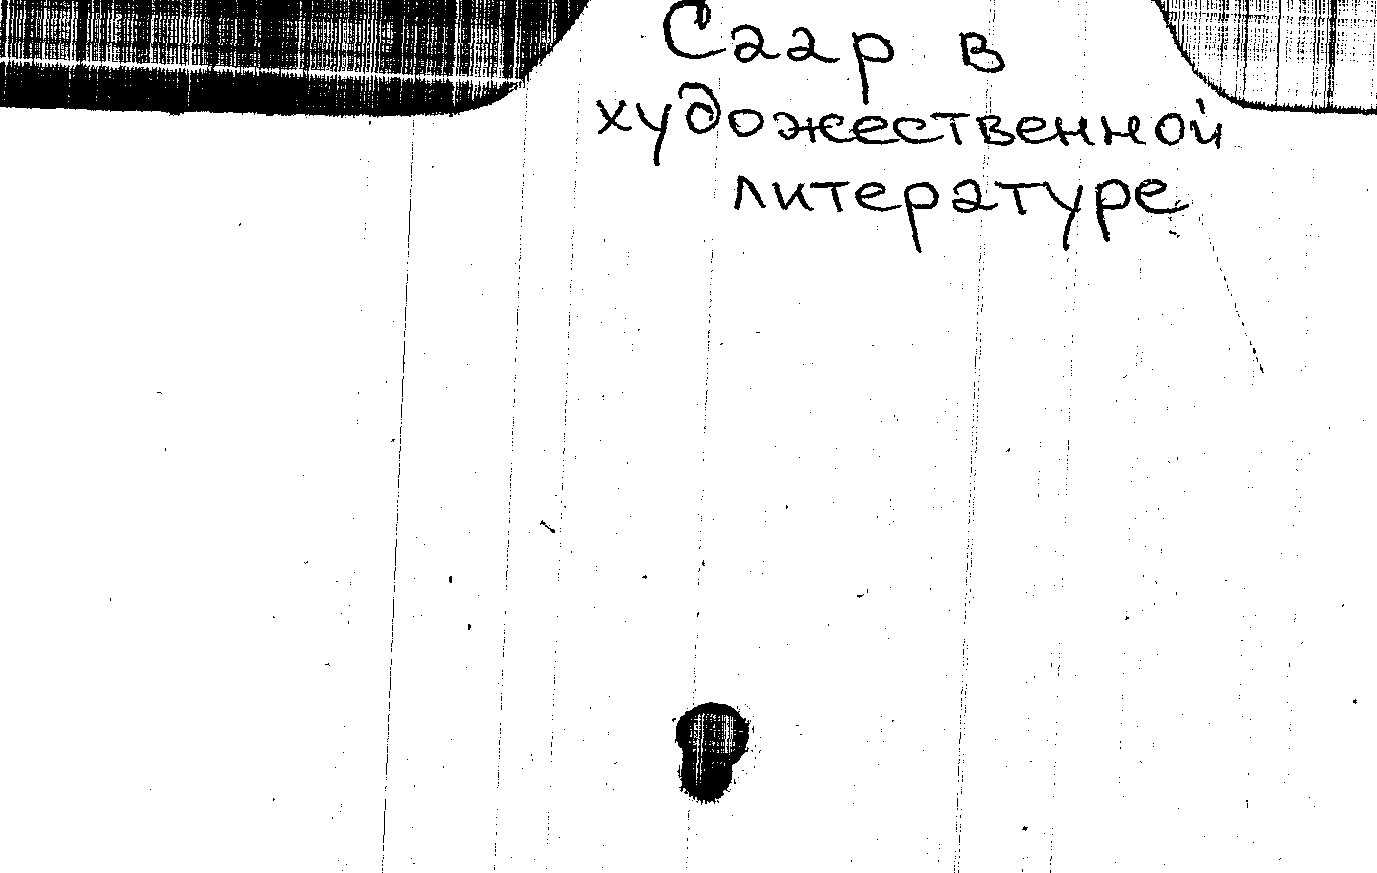 Саар в
художественной
литературе